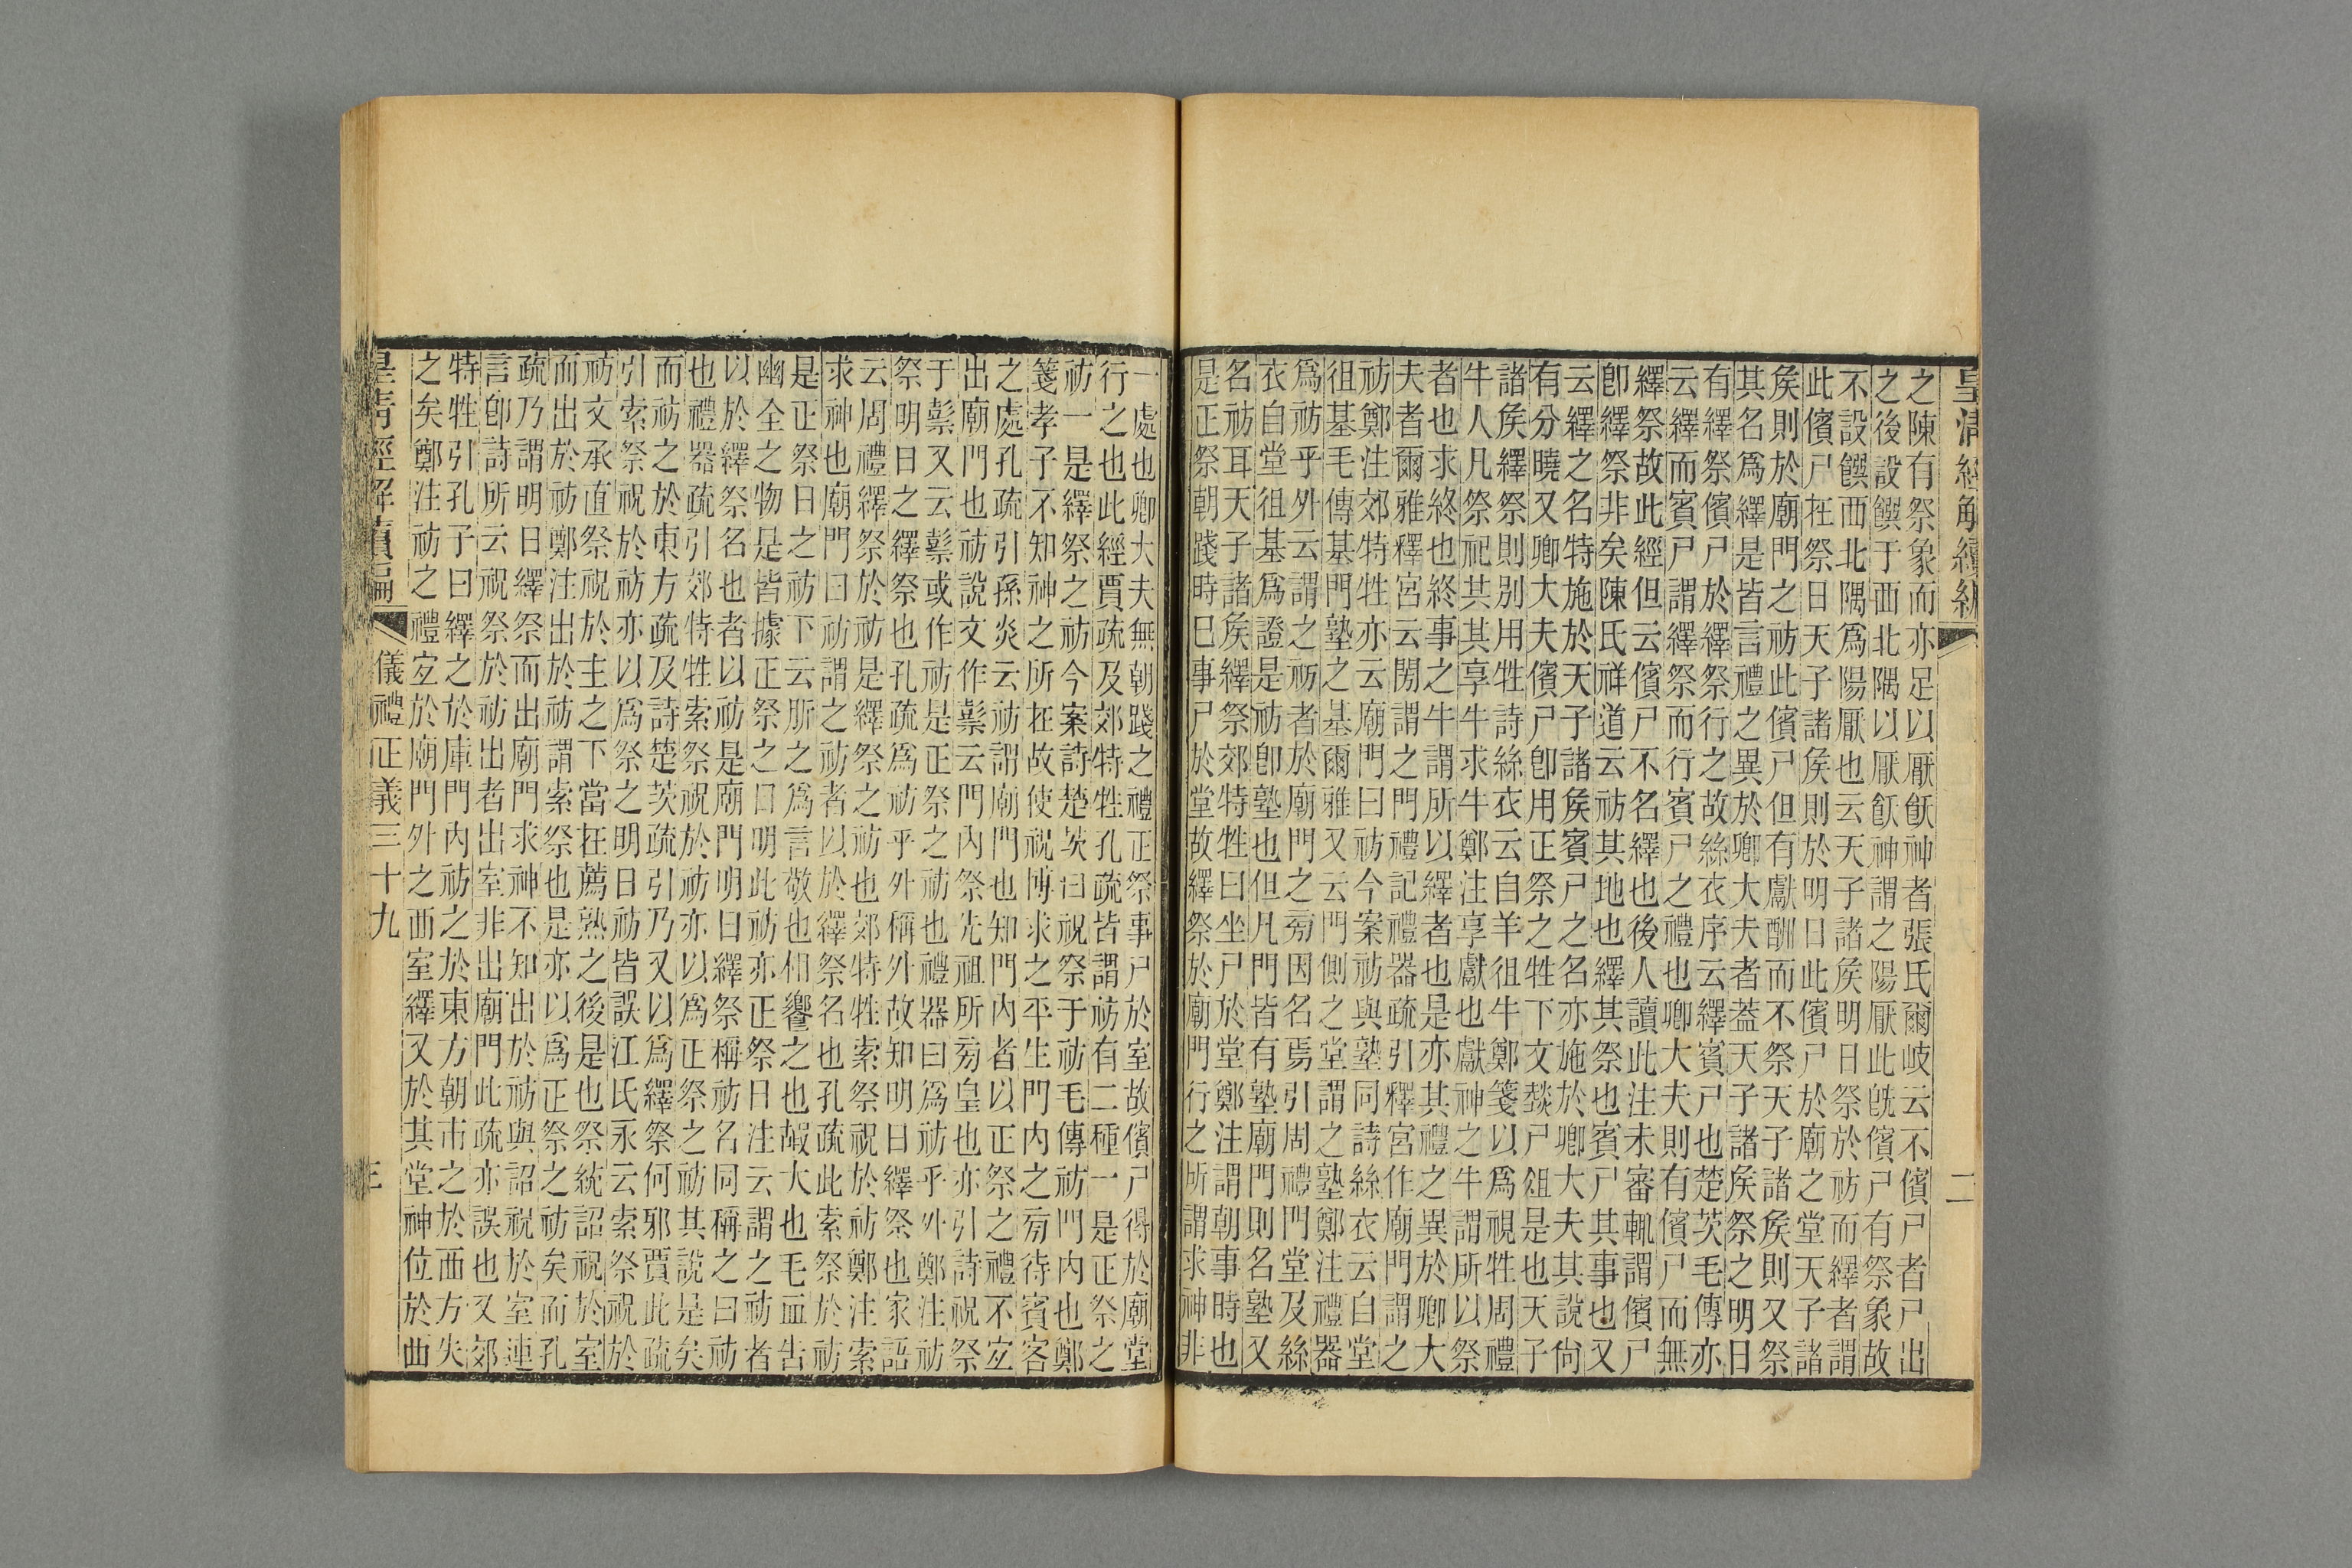 皇清經解續編
二
之陳有祭象而亦足以厭飫神者張氏爾岐云不儐尸者尸出
之後設饌于西北隅以厭飫神謂之陽厭此旣儐尸有祭象故
不設饌西北隅爲陽厭也云天子諸矦明日祭於祊而繹者謂
此儐尸在祭日天子諸矦則於明日此儐尸於廟之堂天子諸
矦則於廟門之祊此儐尸但有獻酬而不祭天子諸矦則又祭
其名爲繹是皆言禮之異於卿大夫者蓋天子諸矦祭之明日
有繹祭儐尸於繹祭行之故絲衣序云繹賓尸也楚茨毛傳亦
云繹而賓尸謂繹祭而行賓尸之禮也卿大夫則有儐尸而無
繹祭故此經但云儐尸不名繹也後人讀此注未審輒謂儐尸
卽繹祭非矣陳氏祥道云祊其地也繹其祭也賓尸其事也又
云繹之名特施於天子諸矦賓尸之名亦施於卿大夫其說尙
有分曉又卿大夫儐尸卽用正祭之牲下文燅尸俎是也天子
諸矦繹祭則別用牲詩絲衣云自羊徂牛鄭箋以爲視牲周禮
牛人凡祭祀共其享牛求牛鄭注享獻也獻神之牛謂所以祭
者也求終也終事之牛謂所以繹者也是亦其禮之異於卿大
夫者爾雅釋宮云閍謂之門禮記禮器疏引釋宮作廟門謂之
祊鄭注郊特牲亦云廟門曰祊今案祊與塾同詩絲衣云自堂
徂基毛傳基門塾之基爾雅又云門側之堂謂之塾鄭注禮器
爲祊乎外云謂之祊者於廟門之㫄因名焉引周禮門堂及絲
衣自堂徂基爲證是祊卽塾也但凡門皆有塾廟門則名塾又
名祊耳天子諸矦繹祭郊特牲曰坐尸於堂鄭注謂朝事時也
是正祭朝踐時巳事尸於堂故繹祭於廟門行之所謂求神非
一處也卿大夫無朝踐之禮正祭事尸於室故儐尸得於廟堂
行之也此經賈疏及郊特牲孔疏皆謂祊有二種一是正祭之
祊一是繹祭之祊今案詩楚茨曰祝祭于祊毛傳祊門內也鄭
箋孝子不知神之所在故使祝博求之平生門內之㫄待賓客
之處孔疏引孫炎云祊謂廟門也知門內者以正祭之禮不宐
出廟門也祊說文作䰃云門內祭先祖所㫄皇也亦引詩祝祭
于䰃又云䰃或作祊是正祭之祊也禮器曰爲祊乎外鄭注祊
祭明日之繹祭也孔疏爲祊乎外稱外故知明日繹祭也家語
云周禮繹祭於祊是繹祭之祊也郊特牲索祭祝於祊鄭注索
求神也廟門曰祊謂之祊者以於繹祭名也孔疏此索祭於祊
是正祭日之祊下云肵之爲言敬也相饗之也嘏大也毛血告
幽全之物是皆據正祭之日明此祊亦正祭日注云謂之祊者
以於繹祭名也者以祊是廟門明日繹祭稱祊名同稱之曰祊
也禮器疏引郊特牲索祭祝於祊亦以爲正祭之祊其說是矣
而祊之於東方疏及詩楚茨疏引乃又以爲繹祭何邪賈此疏
引索祭祝於祊亦以爲祭之明日祊皆誤江氏永云索祭祝於
祊文承直祭祝於主之下當在薦熟之後是也祭統詔祝於室
而出於祊鄭注出於祊謂索祭也是亦以爲正祭之祊矣而孔
疏乃謂明日繹祭而出廟門求神不知出於祊與詔祝於室連
言卽詩所云祝祭於祊出者出室非出廟門此疏亦誤也又郊
特牲引孔子曰繹之於庫門內祊之於東方朝市之於西方失
之矣鄭注祊之禮宐於廟門外之西室繹又於其堂神位於西
皇清經解續編
儀禮正義三十九
三